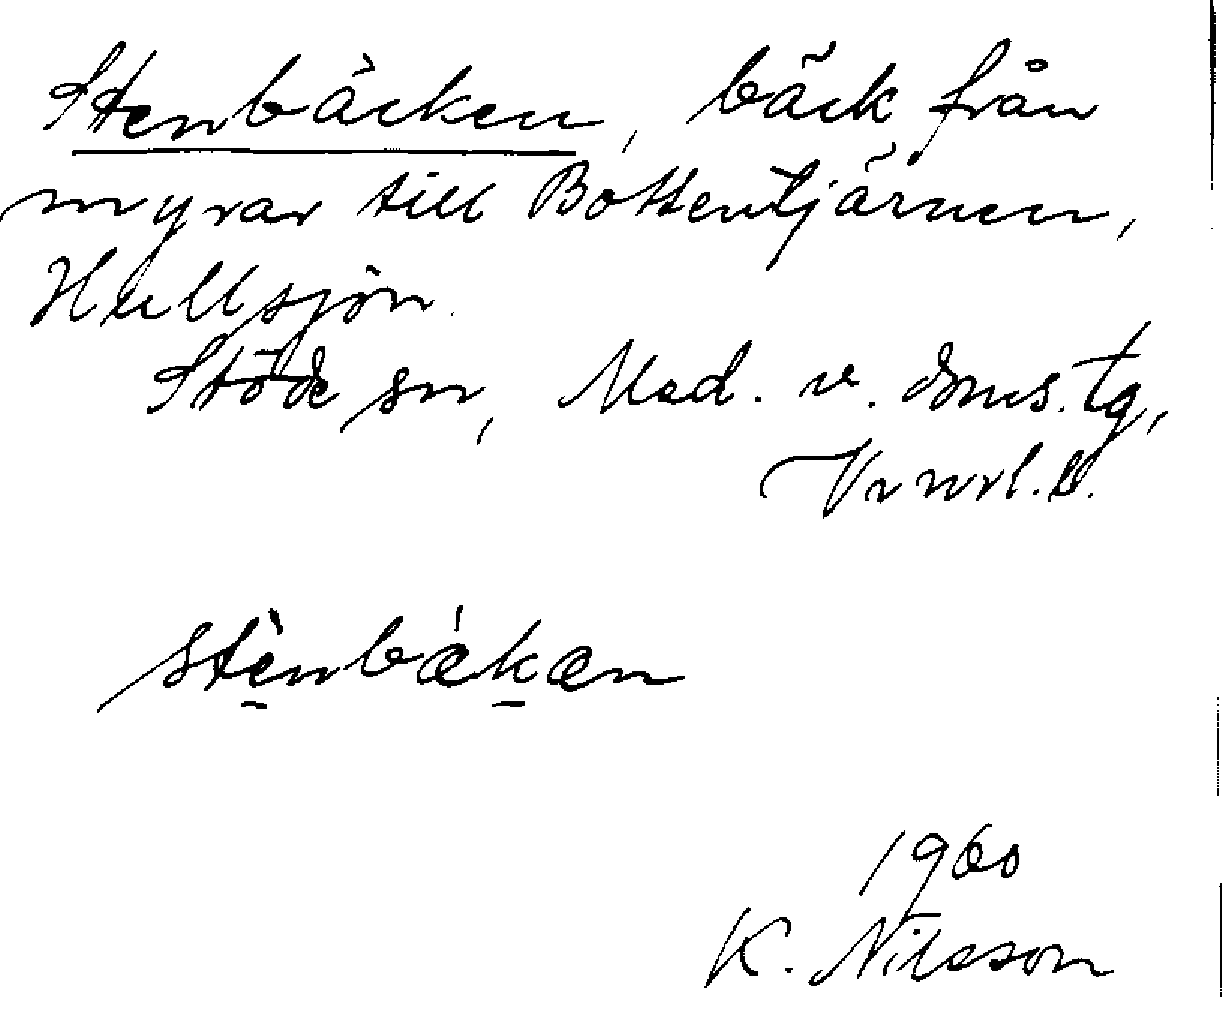 Stenbäcken, bäck från
myrar till Bottentjärnen,
Hullsjön.
Stöde sn, Med. v. doms.tg,
Vrnrl.l.
stènbækæn
1960
K. Nilsson